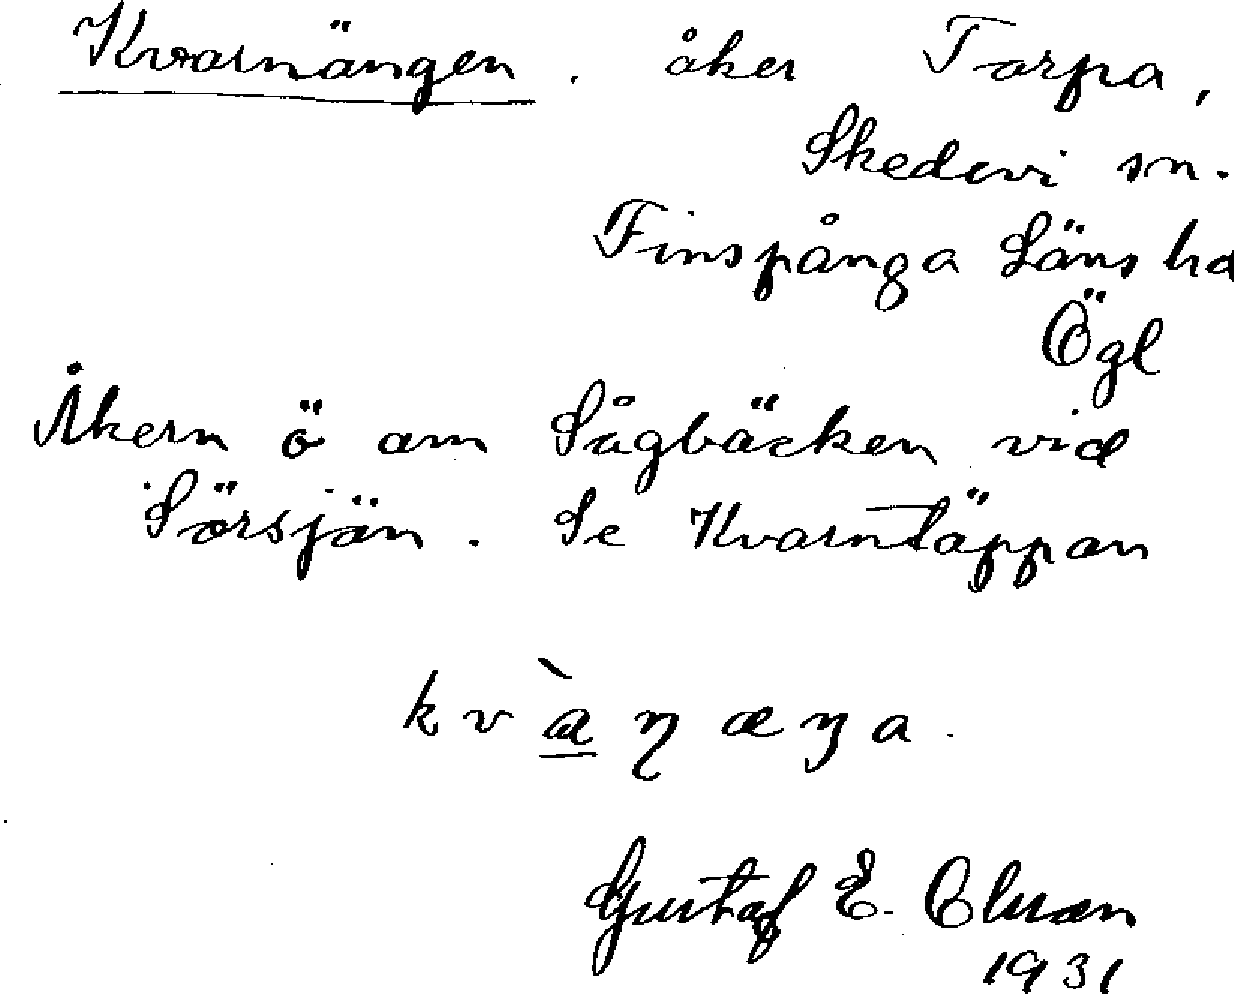 Kvarnängen. åker Torpa,
Skedevi sn.
Finspånga Läns hd
Ögl
Åkern ö om Sågbäcken vid
Sörsjön. Se Kvarntäppan
Gustaf E.
1931